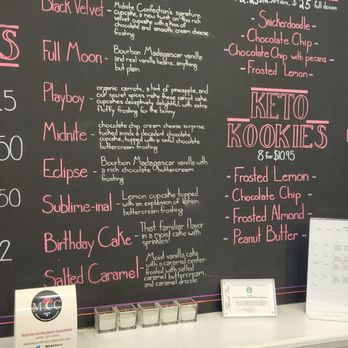 Black Velvet - Midnite Confection's signature
cupcake a new twist on the red
velvet cupcake with a hint of
chocolate and smooth cream cheese
frosting
Full Moon - Bourbon Madagascar vanilla
and real vanilla beans, anything
but plain
Playboy - organic carrots, a hint of pineapple, and
our secret spices make these carrot cake
cupcakes deceptively delightful with extra
fluffy frosting for the bunny
Midnite - chocolate chip cream cheese surprise
tucked inside a decadent chocolate
cupcake, topped with a sinful chocolate
buttercream frosting
Eclipse - Bourbon Madagascar vanilla with
a rich chocolate buttercream
frosting
Sublime-inal - Lemon cupcake topped
with an explosion of lemon
buttercream frosting
Birthday Cake - That familiar flavor
in a moist cake with
sprinkles!
Salted Caramel - Moist vanilla cake
with a caramel center
frosted with salted
caramel buttercream
and caramel drizzle
full dozen
- Snickerdoodle -
- Chocolate Chip -
- Chocolate Chip with pecans -
- Frosted Lemon -
KETO
KOOKIES
8 for $10.95
- Frosted Lemon -
- Chocolate Chip -
- Frosted Almond -
- Peanut Butter -
MCC
Midnite Confection's Cupcakery